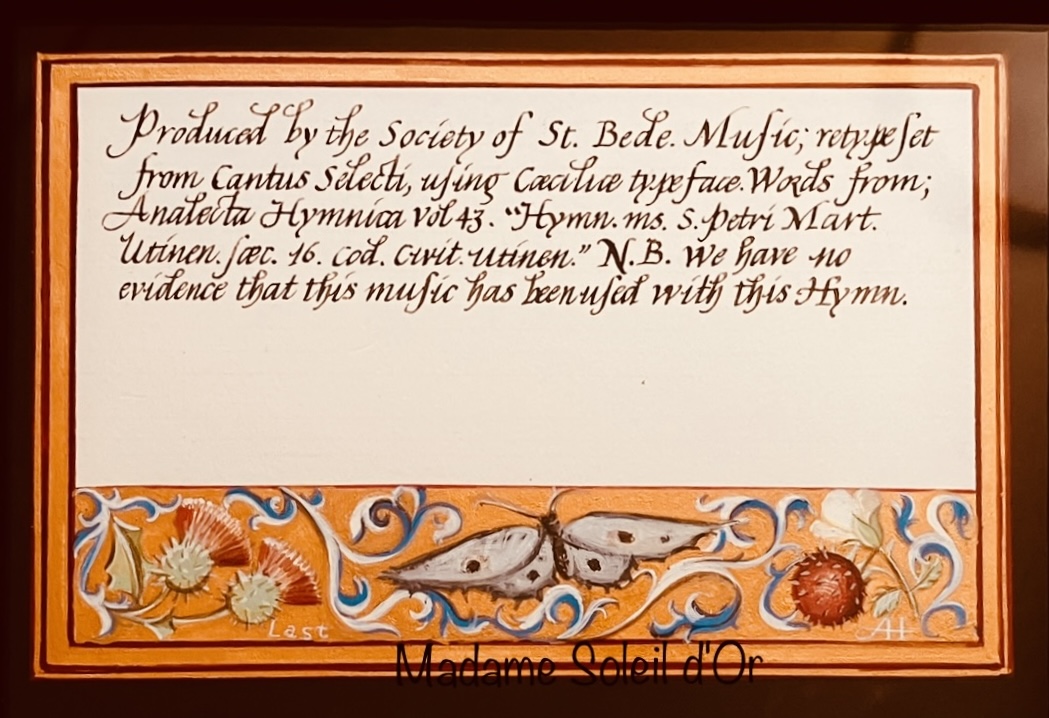 Produced by the Society of St. Bede. Muſic; retypeſet
from Cantus Selecti, uſing Cæciliæ typeface. Words from;
Analecta Hymnica Vol 43. "Hymn. ms. S. Petri Mart.
Utinen. ſæc. 16. Cod. Civit. Utinen." N.B. We have no
evidence that this muſic has been uſed with this Hymn.
Last
AH
Madame Soleil d'Or